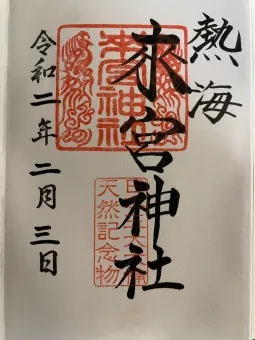 熱海
來宮神社
令和二年二月三日
來宮神社
天然記念物